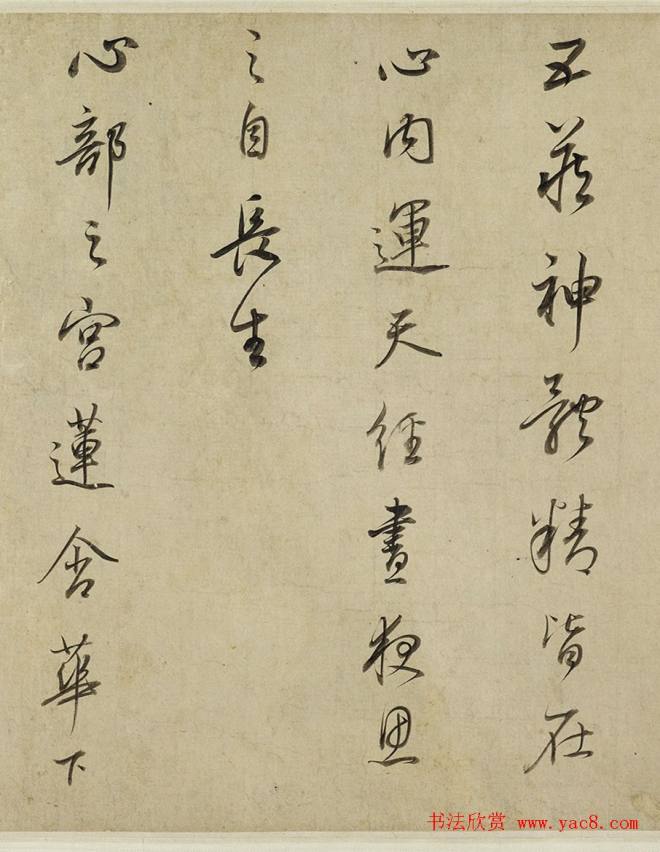 五藏神體精皆在
心内運天經晝夜思
之自長生
心部之宮蓮含華下
书法欣赏 www.yac8.com